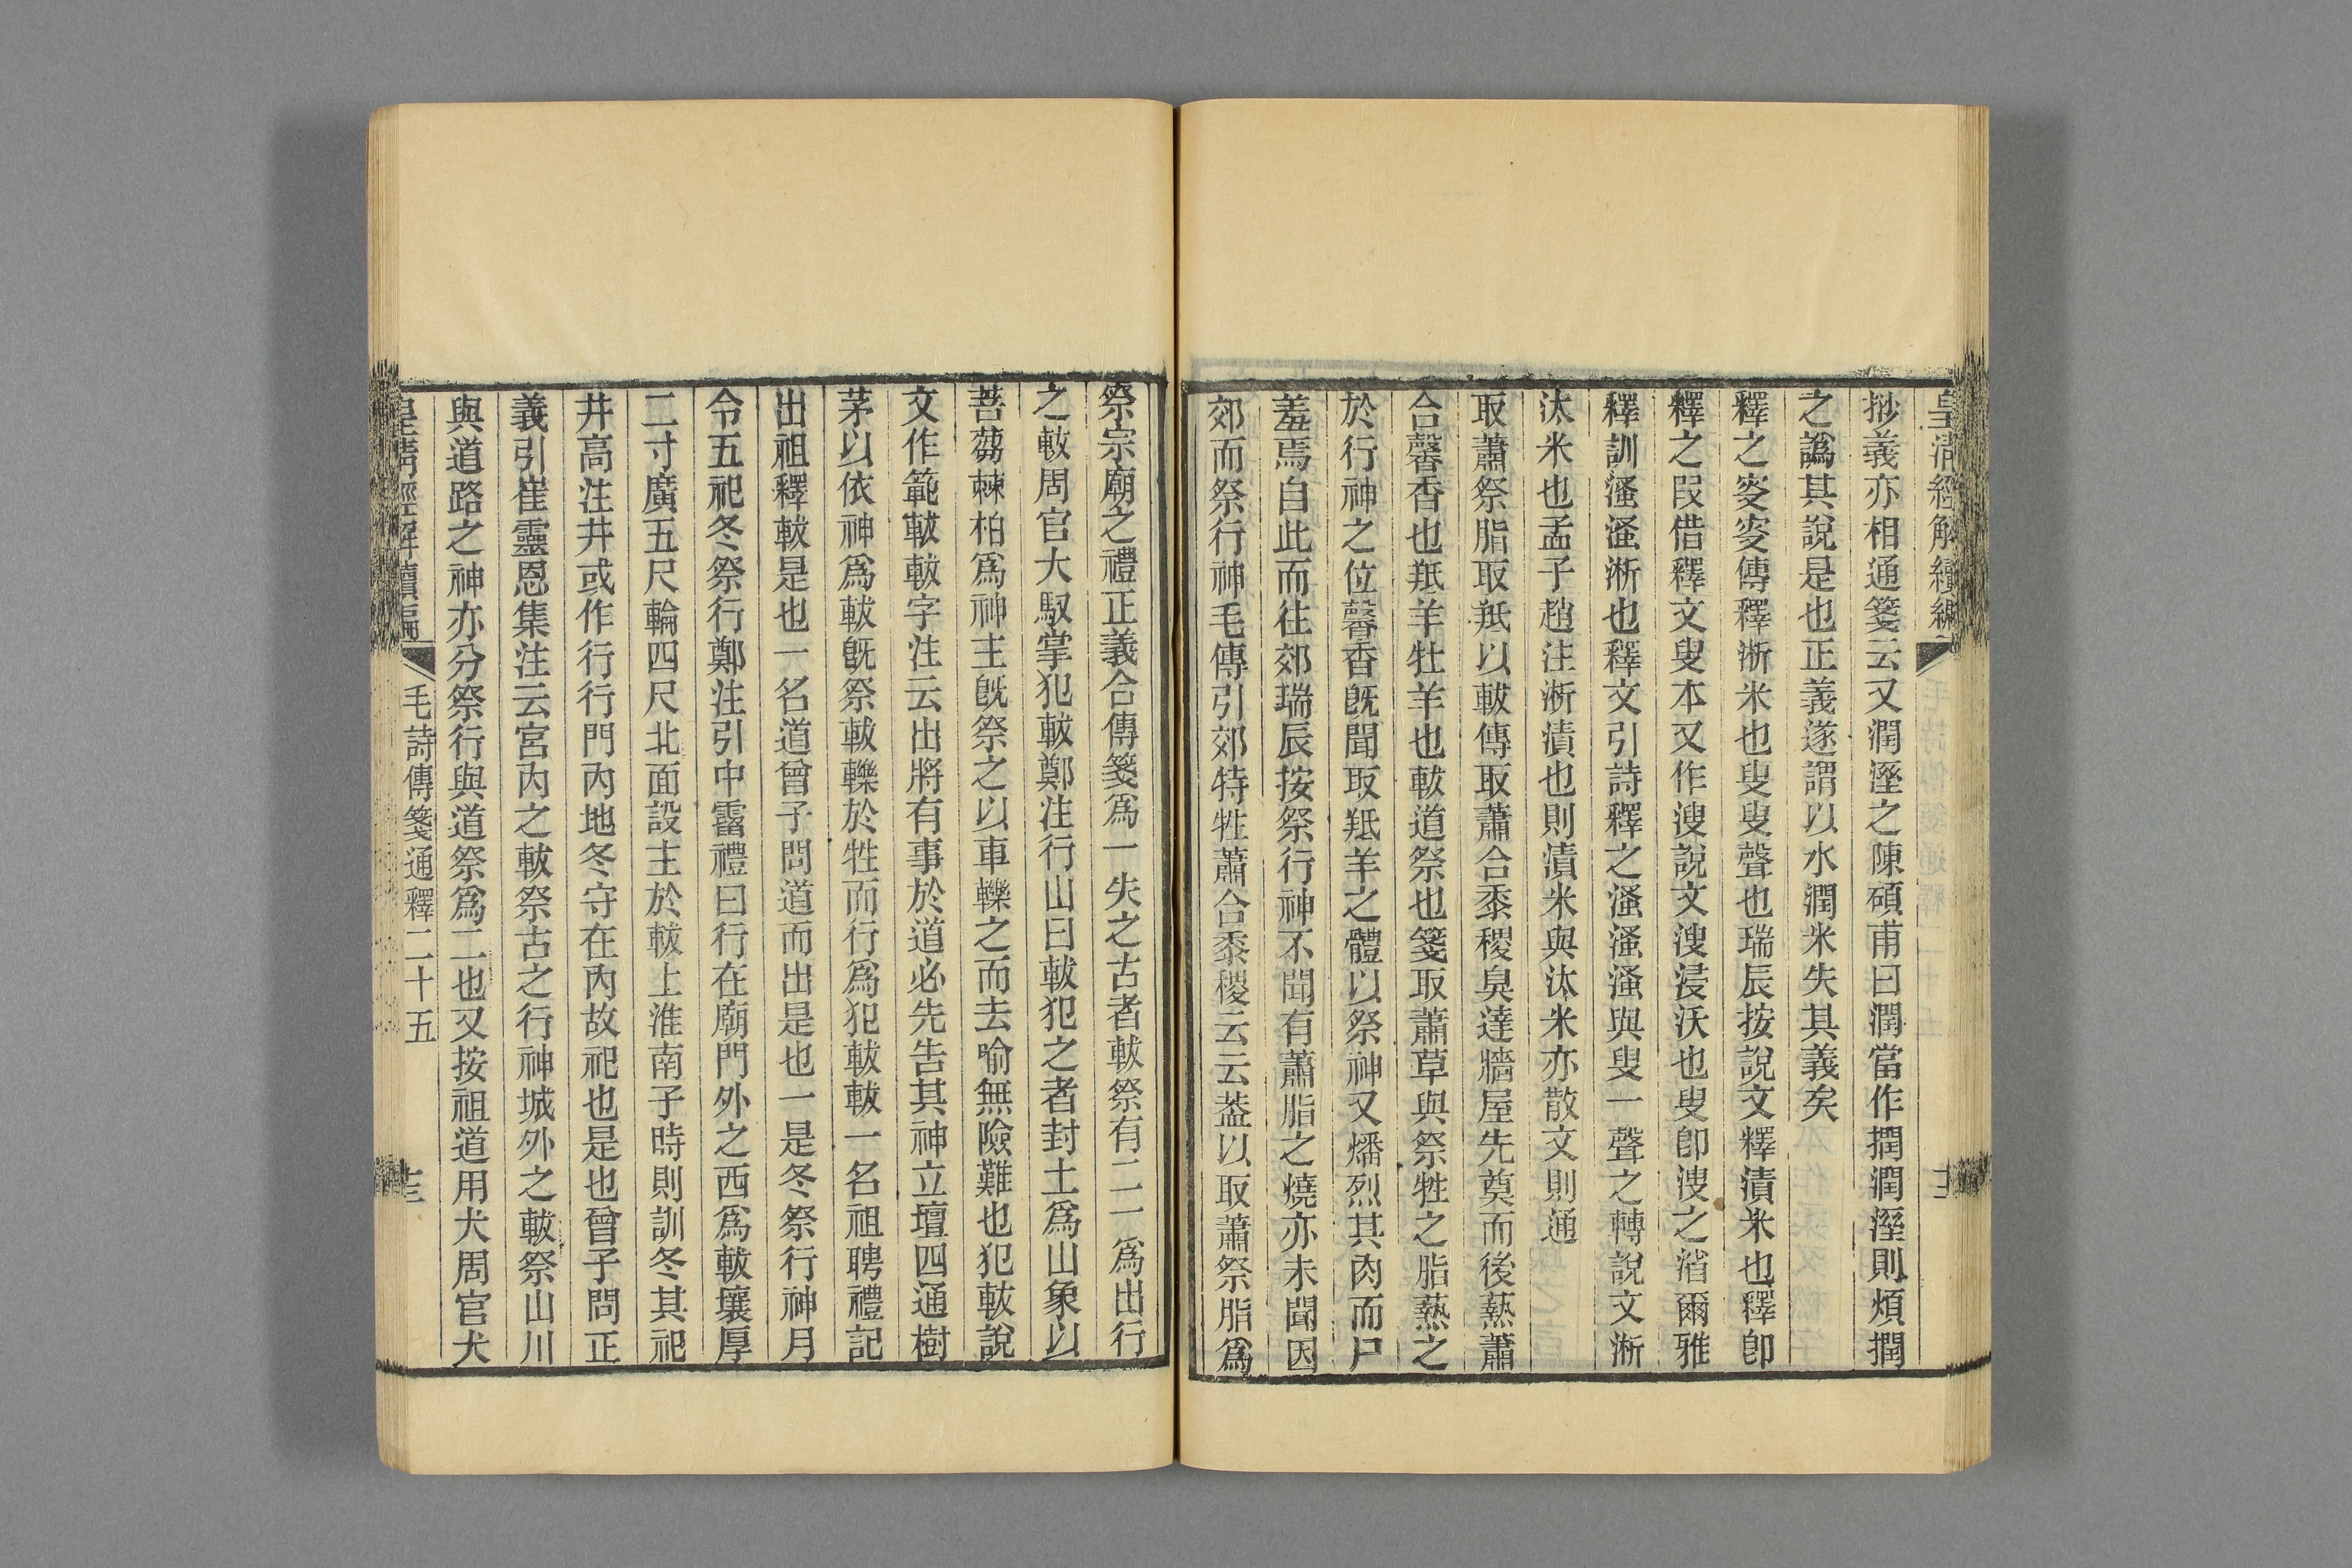 皇淸經解續編
挱義亦相通箋云又潤溼之陳碩甫曰潤當作撋潤溼則煩撋
之譌其說是也正義遂謂以水潤米失其義矣
釋之叟叟傳釋淅米也叟叟聲也瑞辰按說文釋漬米也釋卽
釋之叚借釋文叟本又作溲說文溲浸沃也叟卽溲之渻爾雅
釋訓溞溞淅也釋文引詩釋之溞溞溞與叟一聲之轉說文淅
汰米也孟子趙注淅漬也則漬米與汰米亦散文則通
取蕭祭脂取羝以軷傳取蕭合黍稷臭達牆屋先奠而後爇蕭
合馨香也羝羊牡羊也軷道祭也箋取蕭草與祭牲之脂爇之
於行神之位馨香旣聞取羝羊之體以祭神又燔烈其肉而尸
羞焉自此而往郊瑞辰按祭行神不聞有蕭脂之燒亦未聞因
郊而祭行神毛傳引郊特牲蕭合黍稷云云葢以取蕭祭脂爲
祭宗廟之禮正義合傳箋爲一失之古者軷祭有二一爲出行
之軷周官大馭掌犯軷鄭注行山曰軷犯之者封土爲山象以
菩芻棘柏爲神主旣祭之以車轢之而去喻無險難也犯軷說
文作範軷軷字注云出將有事於道必先告其神立壇四通樹
茅以依神爲軷旣祭軷轢於牲而行爲犯軷軷一名祖聘禮記
出祖釋軷是也一名道曾子問道而出是也一是冬祭行神月
令五祀冬祭行鄭注引中霤禮曰行在廟門外之西爲軷壤厚
二寸廣五尺輪四尺北面設主於軷上淮南子時則訓冬其祀
井高注井或作行行門內地冬守在內故祀也是也曾子問正
義引崔靈恩集注云宮內之軷祭古之行神城外之軷祭山川
與道路之神亦分祭行與道祭爲二也又按祖道用犬周官犬
皇淸經解續編 毛詩傳箋通釋二十五 十三